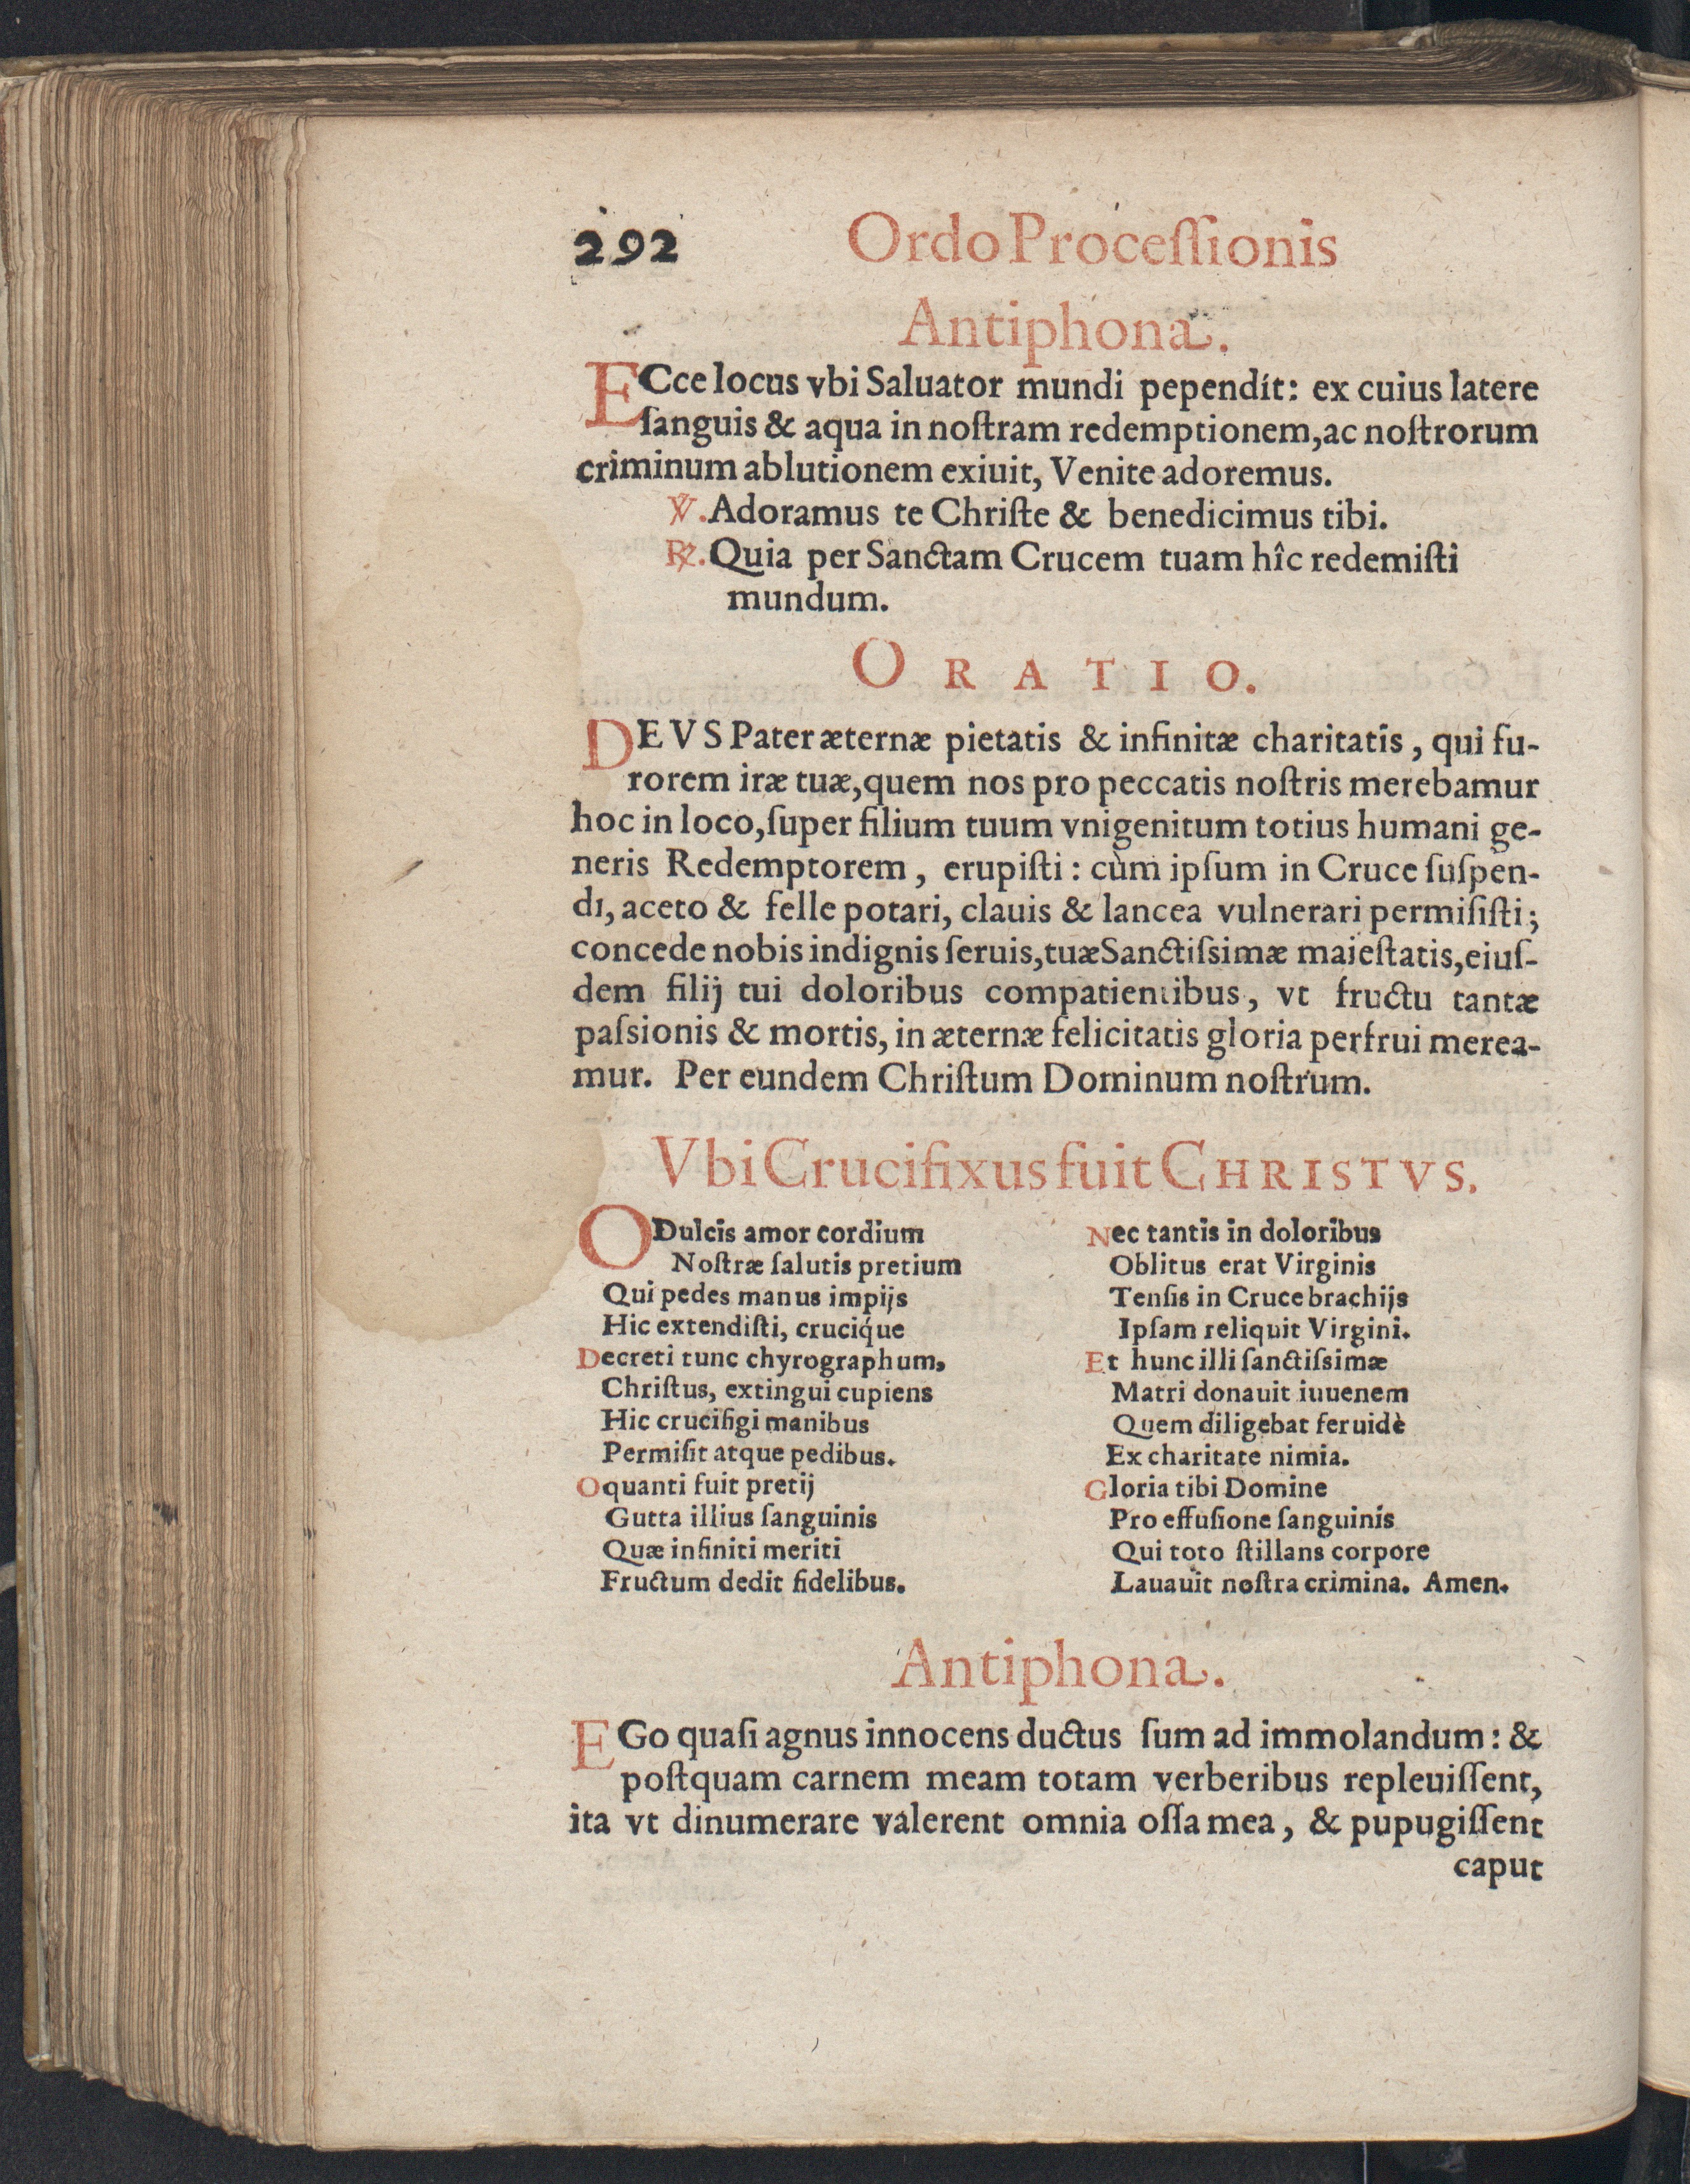 292 Ordo Proceſſionis
Antiphona.
ECce locus vbi Saluator mundi pependit: ex cuius latere
ſanguis & aqua in noſtram redemptionem, ac noſtrorum
criminum ablutionem exiuit, Venite adoremus.
℣. Adoramus te Chriſte & benedicimus tibi.
℟. Quia per Sanctam Crucem tuam hîc redemiſti
mundum.
ORATIO.
DEVS Pater æternæ pietatis & infinitæ charitatis, qui fu-
rorem iræ tuæ, quem nos pro peccatis noſtris merebamur
hoc in loco, ſuper filium tuum vnigenitum totius humani ge-
neris Redemptorem, erupiſti: cùm ipſum in Cruce ſuſpen-
di, aceto & felle potari, clauis & lancea vulnerari permiſiſti;
concede nobis indignis ſeruis, tuæ Sanctiſsimæ maieſtatis, eiuſ-
dem filij tui doloribus compatientibus, vt fructu tantæ
paſsionis & mortis, in æternæ felicitatis gloria perfrui merea-
mur. Per eundem Chriſtum Dominum noſtrum.
Vbi Crucifixus fuit CHRISTVS.
O Dulcis amor cordium
Noſtræ ſalutis pretium
Qui pedes manus impijs
Hic extendiſti, crucíque
Decreti tunc chyrographum,
Chriſtus, extingui cupiens
Hic crucifigi manibus
Permiſit atque pedibus.
O quanti fuit pretij
Gutta illius ſanguinis
Quæ infiniti meriti
Fructum dedit fidelibus.
Nec tantis in doloribus
Oblitus erat Virginis
Tenſis in Cruce brachijs
Ipſam reliquit Virgini.
Et hunc illi ſanctiſsimæ
Matri donauit iuuenem
Quem diligebat feruidè
Ex charitate nimia.
Gloria tibi Domine
Pro effuſione ſanguinis
Qui toto ſtillans corpore
Lauauit noſtra crimina. Amen.
Antiphona.
EGo quaſi agnus innocens ductus ſum ad immolandum: &
poſtquam carnem meam totam verberibus repleuiſſent,
ita vt dinumerare valerent omnia oſſa mea, & pupugiſſent
caput